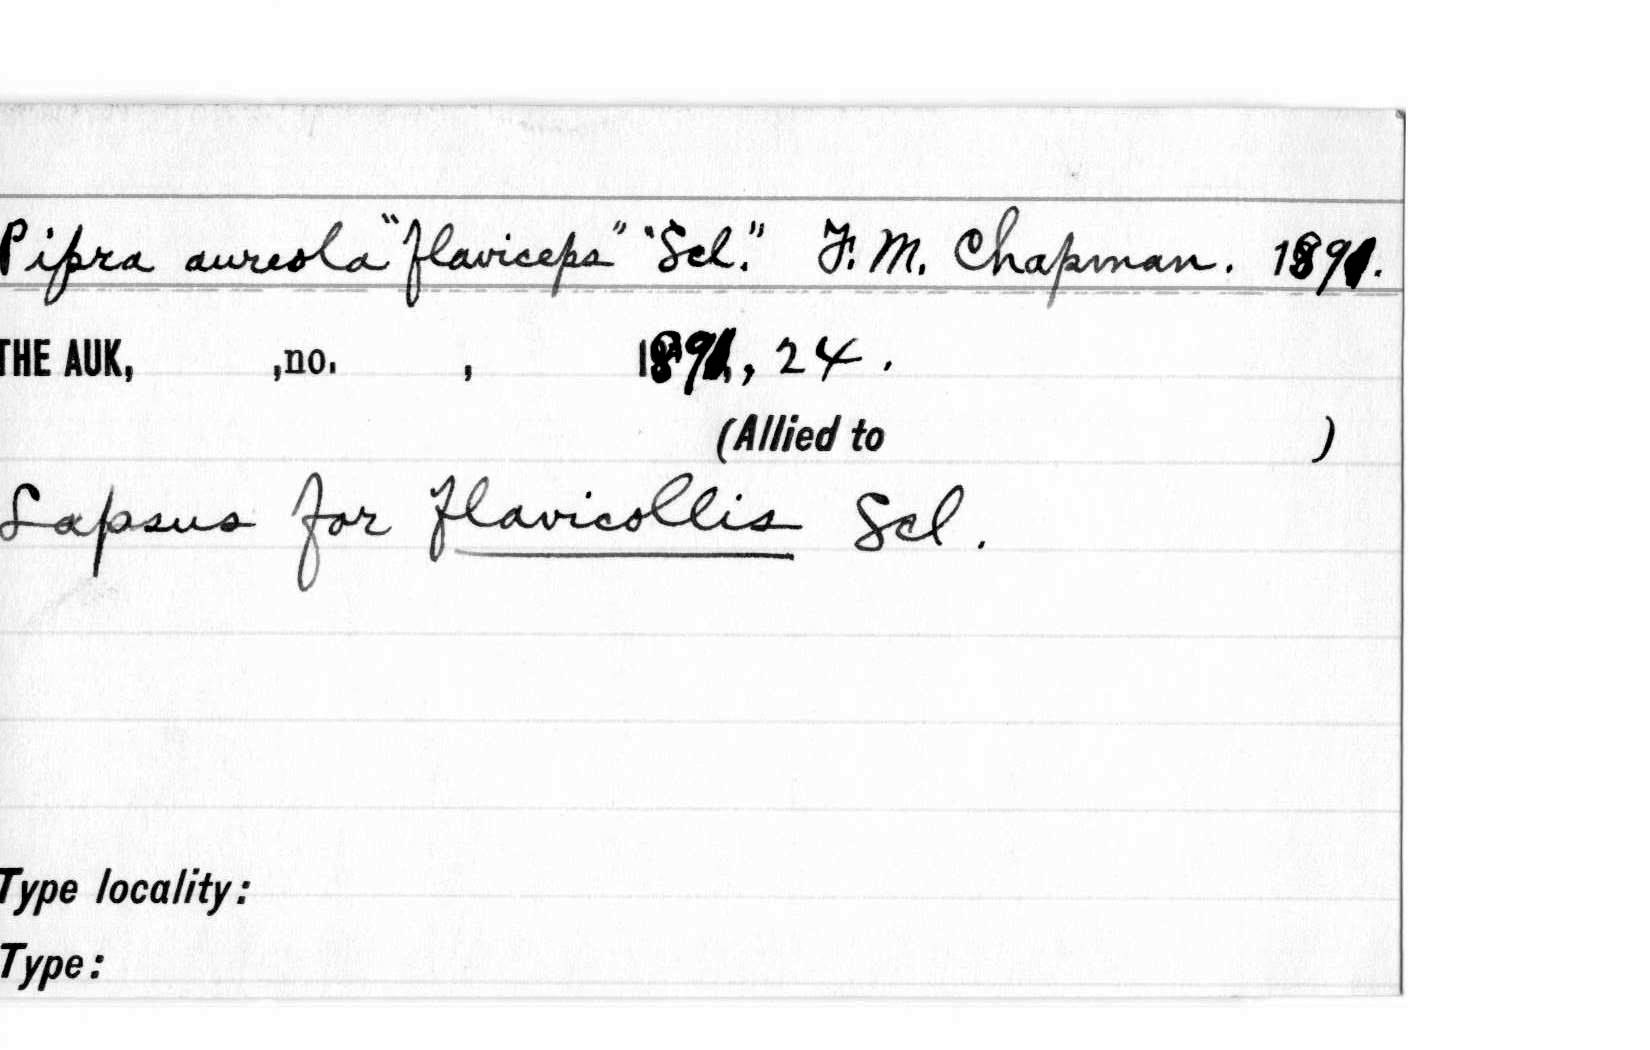 Pipra aureola "flaviceps" "Scl." F. M. Chapman. 1891.
THE AUK, ,no. , 1891, , 24.
(Allied to )
Lapsus for flavicollis Scl.
Type locality:
Type: